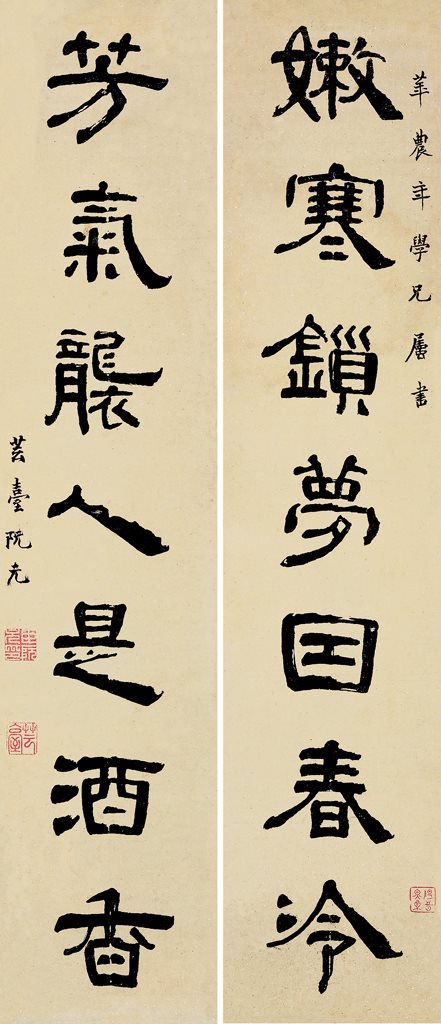 華農年學兄屬書
嫩寒鎖夢囙春冷
芳氣襲人是酒香
芸臺阮元
芸臺